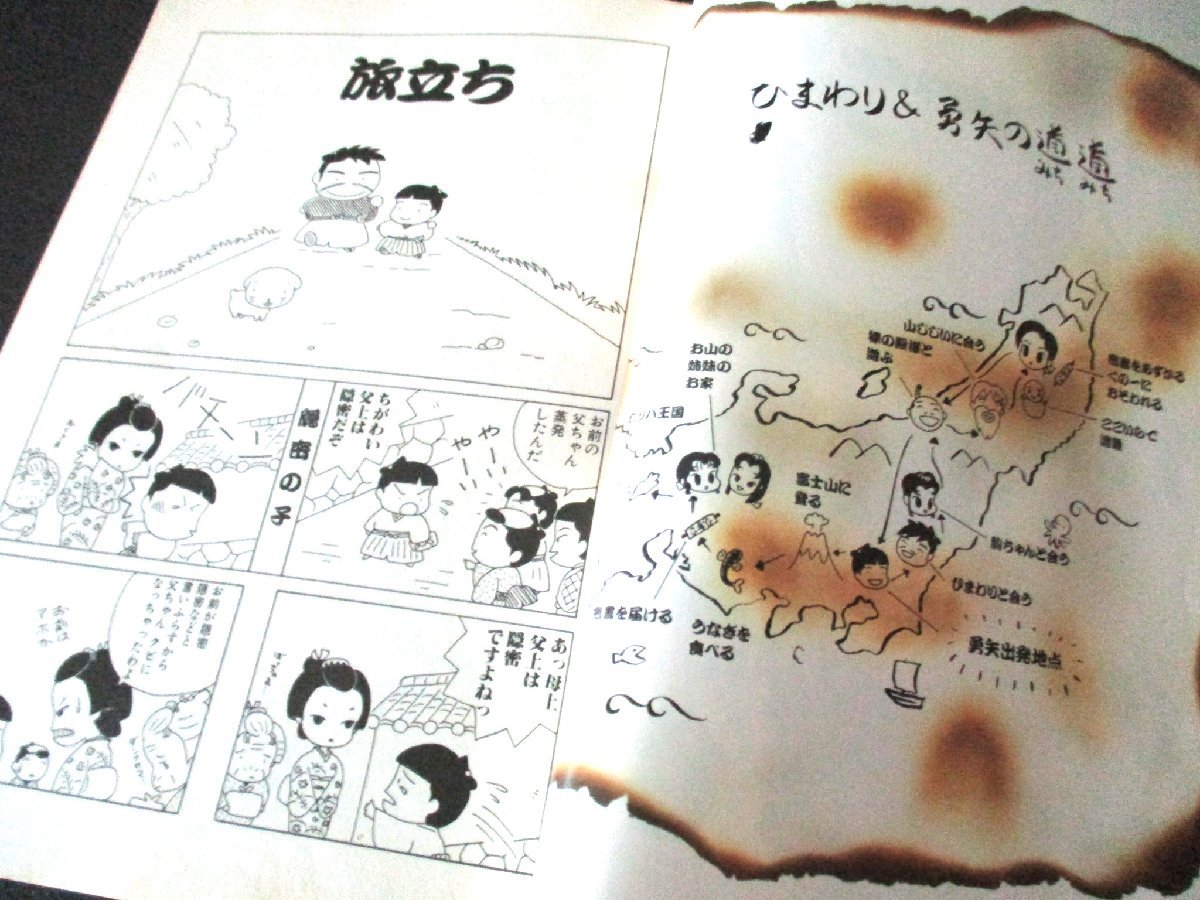 旅立ち
お前の
父ちゃん
蒸発
したんだ
やーい
やーい
ちがわい
父上は
隠密だぞ
隠密の子
あっ母上
父上は
隠密
ですよねっ
お前が隠密
隠密などと
言いふらすから
父ちゃん、クビに
なっちゃったわよ
ひまわり&勇矢の道道
みち みち
山じじいに会う
裸の殿様と
遊ぶ
くの一に
おそわれる
お山の
姉妹の
お家
富士山に
登る
駒ちゃんと会う
ひまわりと会う
勇矢出発地点
うなぎを
食べる
密書を届ける